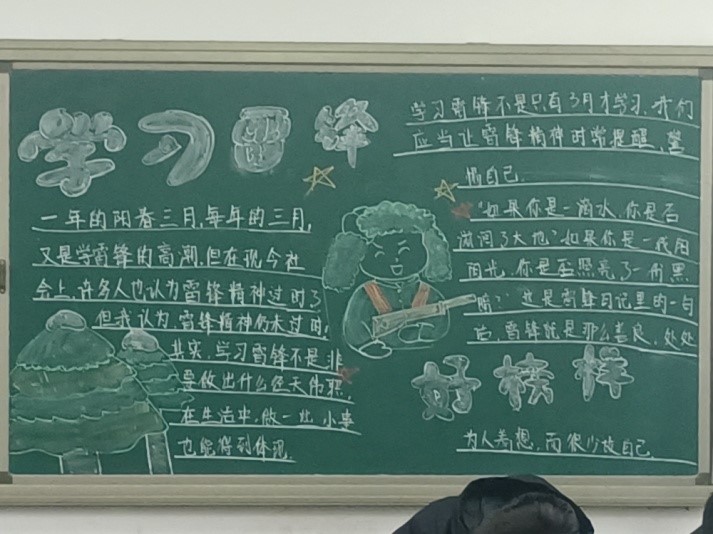 学习雷锋
一年的阳春三月,每年的三月,
又是学雷锋的高潮,但在现今社
会上,许多人也认为雷锋精神过时了
但我认为,雷锋精神仍未过时,
其实,学习雷锋不是非
要做出什么经天伟業,
在生活中,做一些小事
也能得到体现.
学习雷锋不是只有3月才学习,我们
应当让雷锋精神时常提醒、警
惕自己.
"如果你是一滴水,你是否
滋润了大地?"如果你是一线阳
阳光,你是否照亮了一角黑
暗?"这是雷锋日记里的一句
话,雷锋就是那么善良,处处
好榜样
为人着想,而很少考自己.